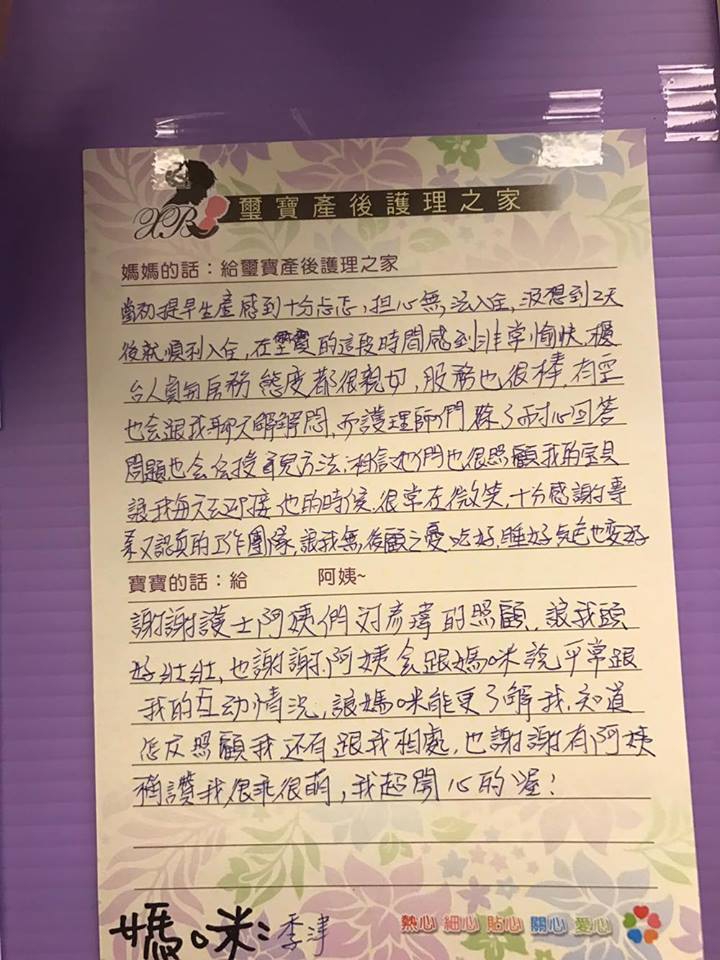 XB
璽寶產後護理之家
媽媽的話：給璽寶產後護理之家
當初提早生產感到十分忐忑，担心無法入住，沒想到2天
後就順利入住，在璽寶的這段時間感到非常愉快，櫃
台人員與房務態度都很親切，服務也很棒，有空
也会跟我聊天解解悶，而護理師們除了耐心回答
問題也会会授育兒方法，相信她們也很照顧我的宝貝
讓我每天去迎接他的時候，很常在微笑，十分感謝專
業又認真的工作團隊，讓我無後顧之憂，吃好，睡好氣色也变好
寶寶的話：給　　　阿姨~
謝謝護士阿姨們对彥瑋的照顧，讓我頭
好壯壯，也謝謝阿姨会跟媽咪說平常跟
我的互动情況，讓媽咪能更了解我，知道
怎麼照顧我还有跟我相處，也謝謝有阿姨
稱讚我很乖很萌，我超開心的喔！
媽咪：季津
熱心 細心 貼心 關心 愛心